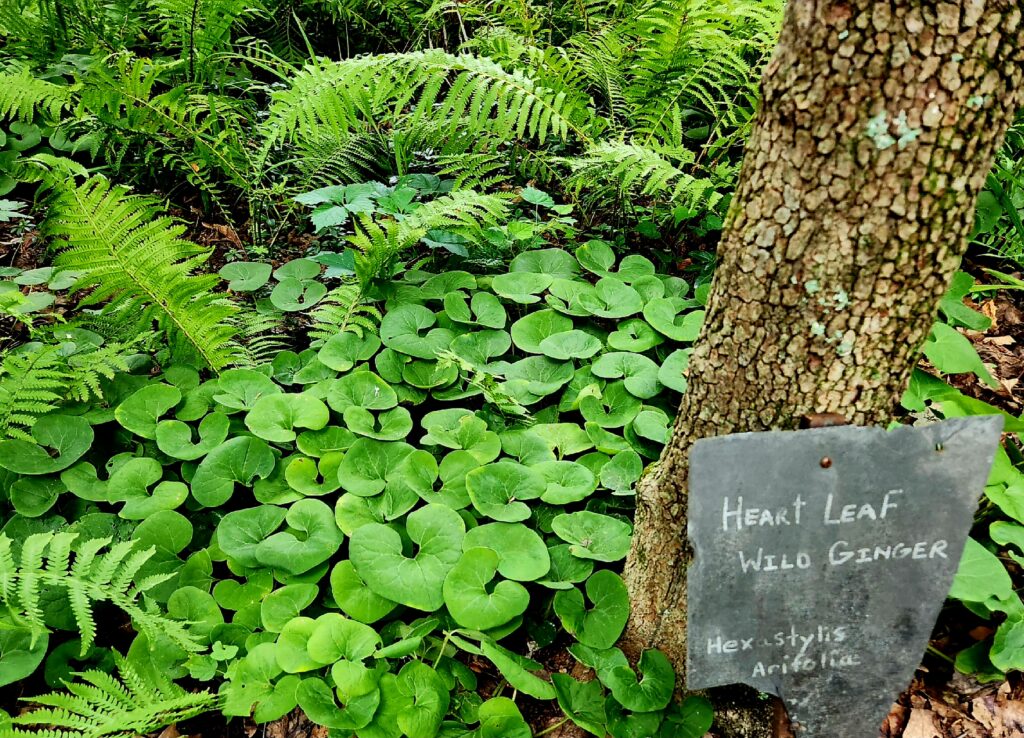 Heart Leaf
Wild Ginger
Hexastylis
Arifolia